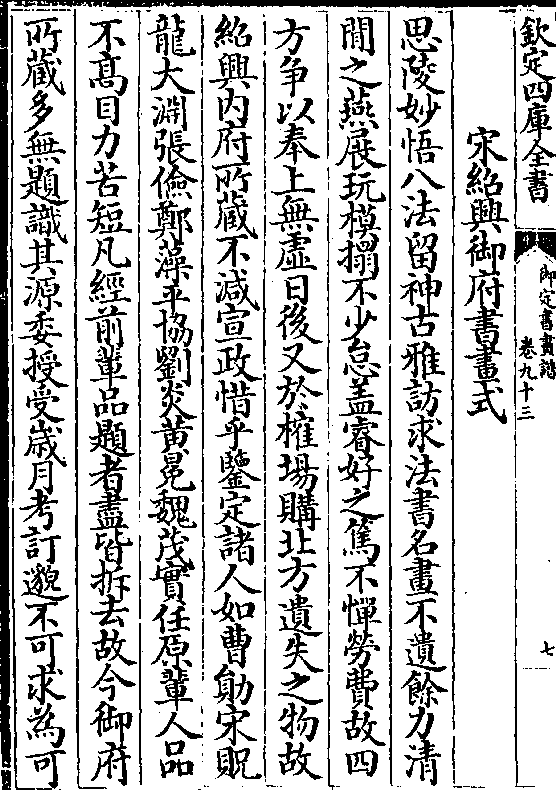 欽定四庫全書
御定書畫譜
卷九十三
七
宋紹興御府書畫式
思陵妙悟八法留神古雅訪求法書名畫不遺餘力清
閒之燕展玩模搨不少怠盖睿好之篤不憚勞費故四
方争以奉上無虚日後又於榷塲購北方遺失之物故
紹興内府所藏不减宣政惜乎鑒定諸人如曹勛宋貺
龍大淵張儉鄭藻平協劉炎黄冕魏茂實任原輩人品
不髙目力苦短凡經前輩品題者盡皆拆去故今御府
所藏多無題識其源委授受歳月考訂邈不可求為可